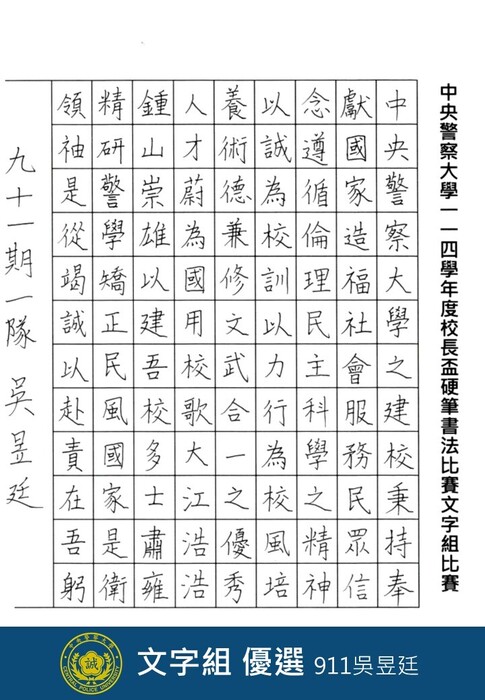 中央警察大學一一四學年度校長盃硬筆書法比賽文字組比賽
中央警察大學之建校秉持奉
獻國家造福社會服務民眾信
念遵循倫理民主科學之精神
以誠為校訓以力行為校風培
養術德兼修文武合一之優秀
人才蔚為國用校歌大江浩浩
鍾山崇雄以建吾校多士肅雍
精研警學矯正民風國家是衛
領袖是從竭誠以赴責在吾躬
九十一期一隊 吳昱廷
誠
CENTRAL POLICE UNIVERSITY
文字組 優選 911吳昱廷